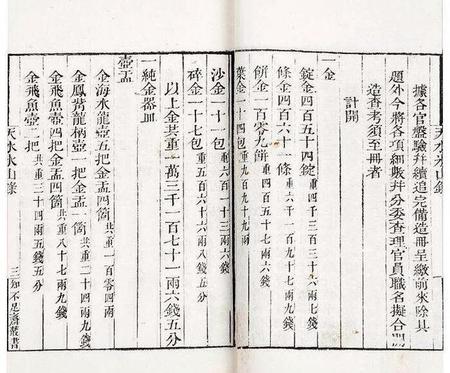 天水冰山錄
據各官盤驗幷續追完備造冊呈繳前來除具
題外今將各項細數幷分委查理官員職名擬合開
造查考須至冊者
計開
一金
錠金四百五十四錠重四千三百三十六兩七錢
條金四百六十一條重六千一百九十兩九錢
餅金一百零九餅重
葉金一十四包重九百九十九兩
沙金一十一包重六百一十三兩
碎金一十七包重五百六十六兩八錢五分
以上金共重一萬三千一百七十一兩六錢五分
一純金器皿
壺盂
金海水龍壺五把金盂四箇共重一百零四兩
金鳳背龍柄壺一把金盂一箇共重二十四兩九錢
金飛魚壺四把金盂四箇共重八十七兩九錢
金飛魚壺二把共重三十四兩五錢五分
天水冰山錄
三
知不足齋叢書